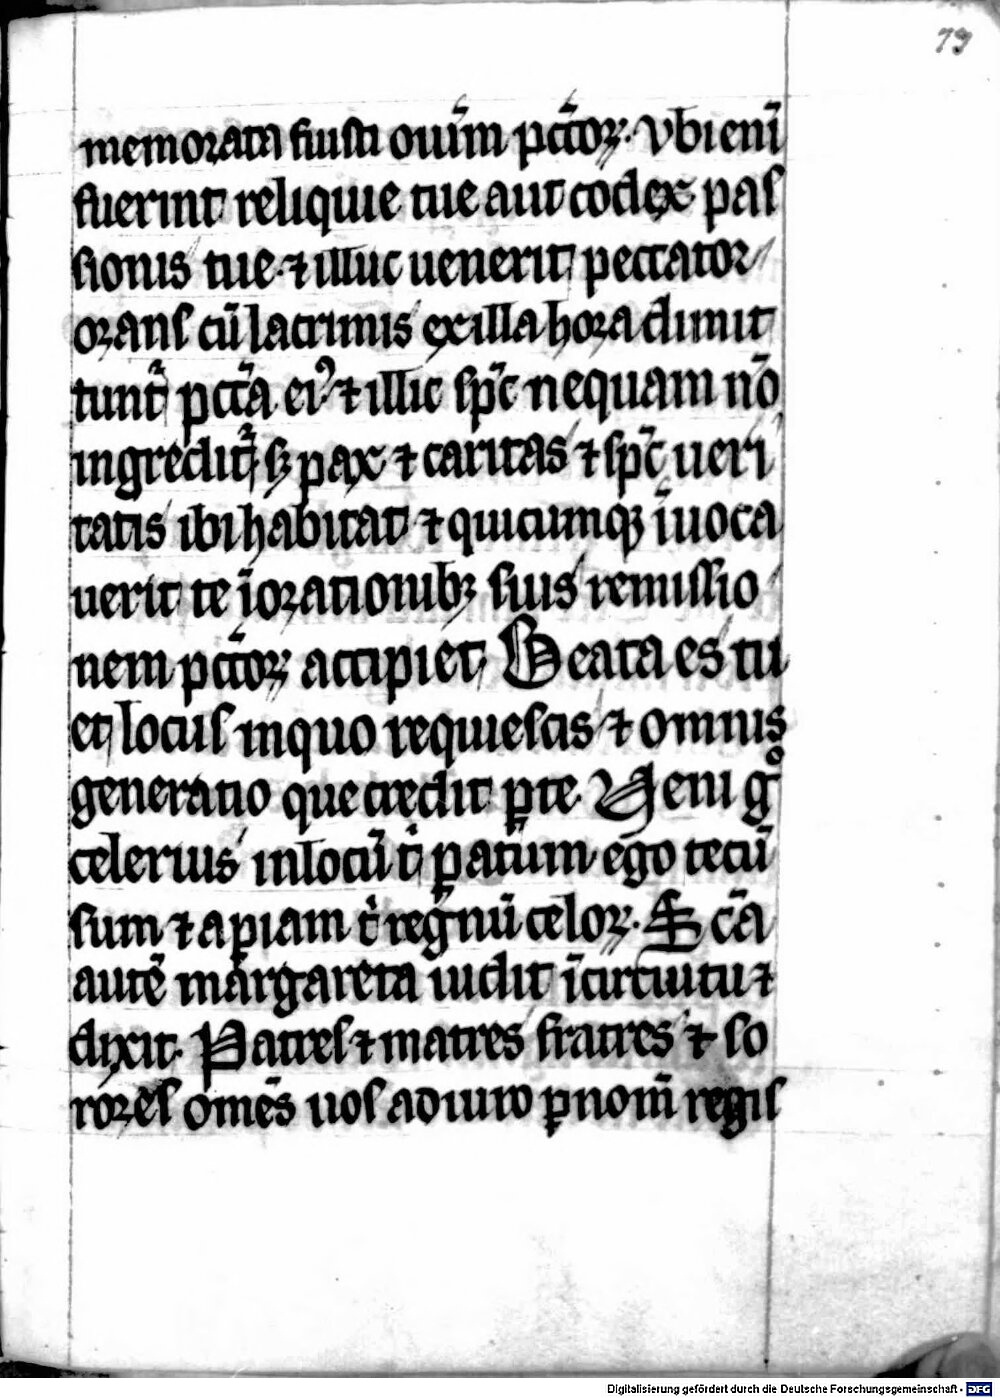 79
memorata fiusti ouīm pctōꝝ. Vbi enī
fuerint reliquie tue aut codex pas
sionis tue. ⁊ illuc uenerit peccator
orans cū lacrimis ex illa hora dimit
tunt᷑ pctā eiꝰ ⁊ illic spc̄ nequam nō
ingredit᷑ sꝫ pax ⁊ caritas ⁊ spc̄ ueri
tatis ibi habitat ⁊ quicumqꝫ īuoca
uerit te ī orationibꝫ suis remissio
nem pctōꝝ accipiet. Beata es tu
et locus in quo requiescis ⁊ omnis
generatio que credit p te. Veni gͦ
celerius in locū tⁱ paratum ego tecū
sum ⁊ apiam tⁱ regnū celoꝝ. Sc̄a
autē margareta uidit ī circuitu ⁊
dixit. Patres ⁊ matres fratres ⁊ so
rores omēs uos adiuro ꝑ nom̄ regis
Digitalisierung gefördert durch die Deutsche Forschungsgemeinschaft - DFG